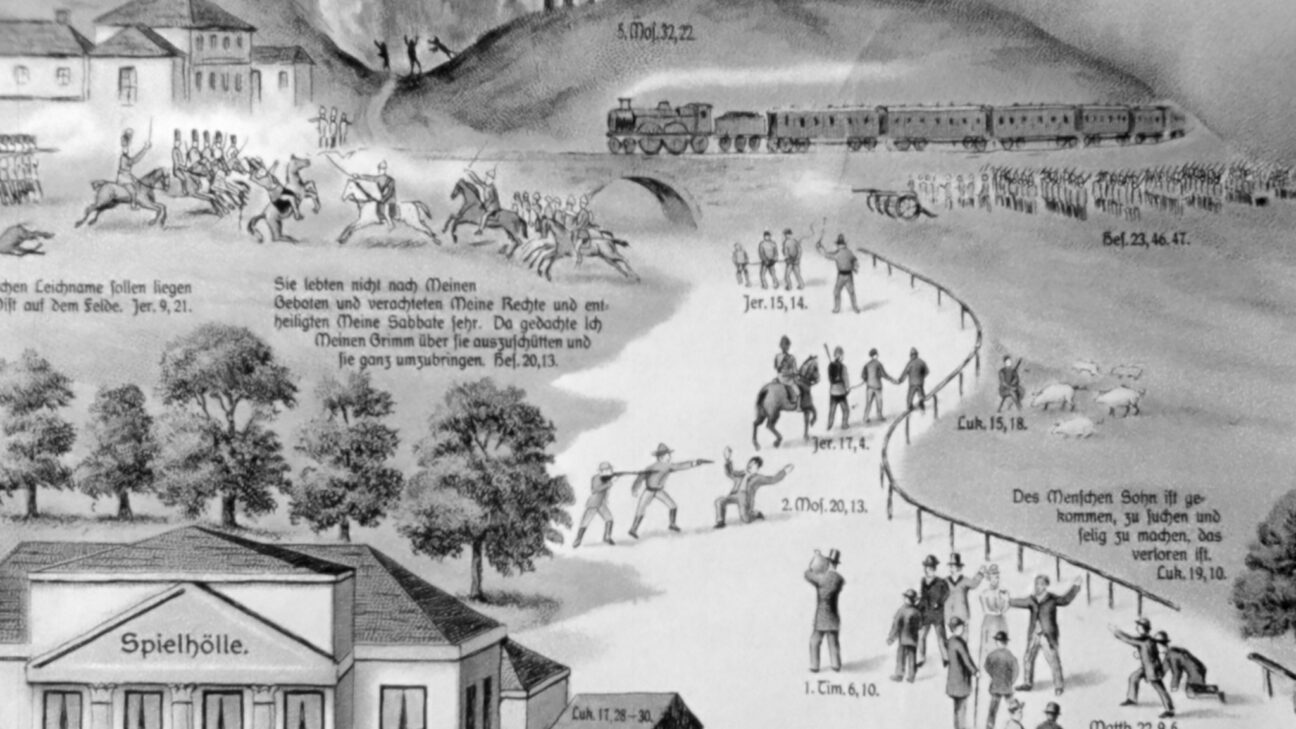 5. Mos. 32, 22.
Hes. 23, 46. 47.
chen Leichname sollen liegen
Mist auf dem Felde. Jer. 9, 21.
Sie lebten nicht nach Meinen
Geboten und verachteten Meine Rechte und ent-
heiligten Meine Sabbate sehr. Da gedachte Ich
Meinen Grimm über sie auszuschütten und
sie ganz umzubringen. Hes. 20, 13.
Jer. 15, 14.
Luk. 15, 18.
Jer. 17, 4.
2. Mos. 20, 13.
Des Menschen Sohn ist ge-
kommen, zu suchen und
selig zu machen, das
verloren ist.
Luk. 19, 10.
Spielhölle.
1. Tim. 6, 10.
Luk. 17, 28-30.